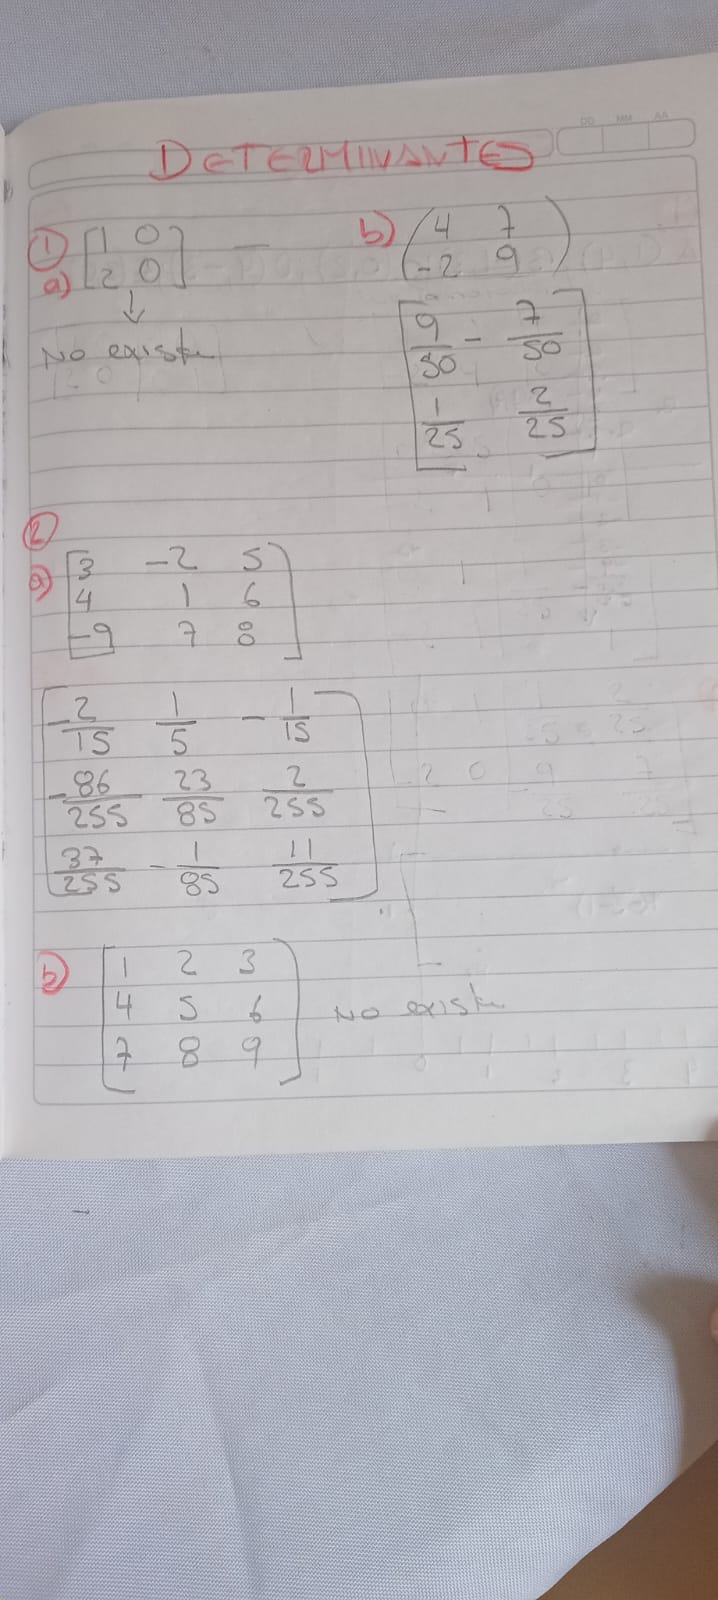 DD MM AA
DETERMINANTES
① [1 0
a) 2 0] —
No existe
b) (4 7
-2 9)
[9/50 - 7/50
1/25 2/25]
②
a) [3 -2 5
4 1 6
-9 7 8]
[-2/15 1/5 -1/15
-86/255 23/85 2/255
37/255 -1/85 11/255]
b) [1 2 3
4 5 6 No existe
7 8 9]